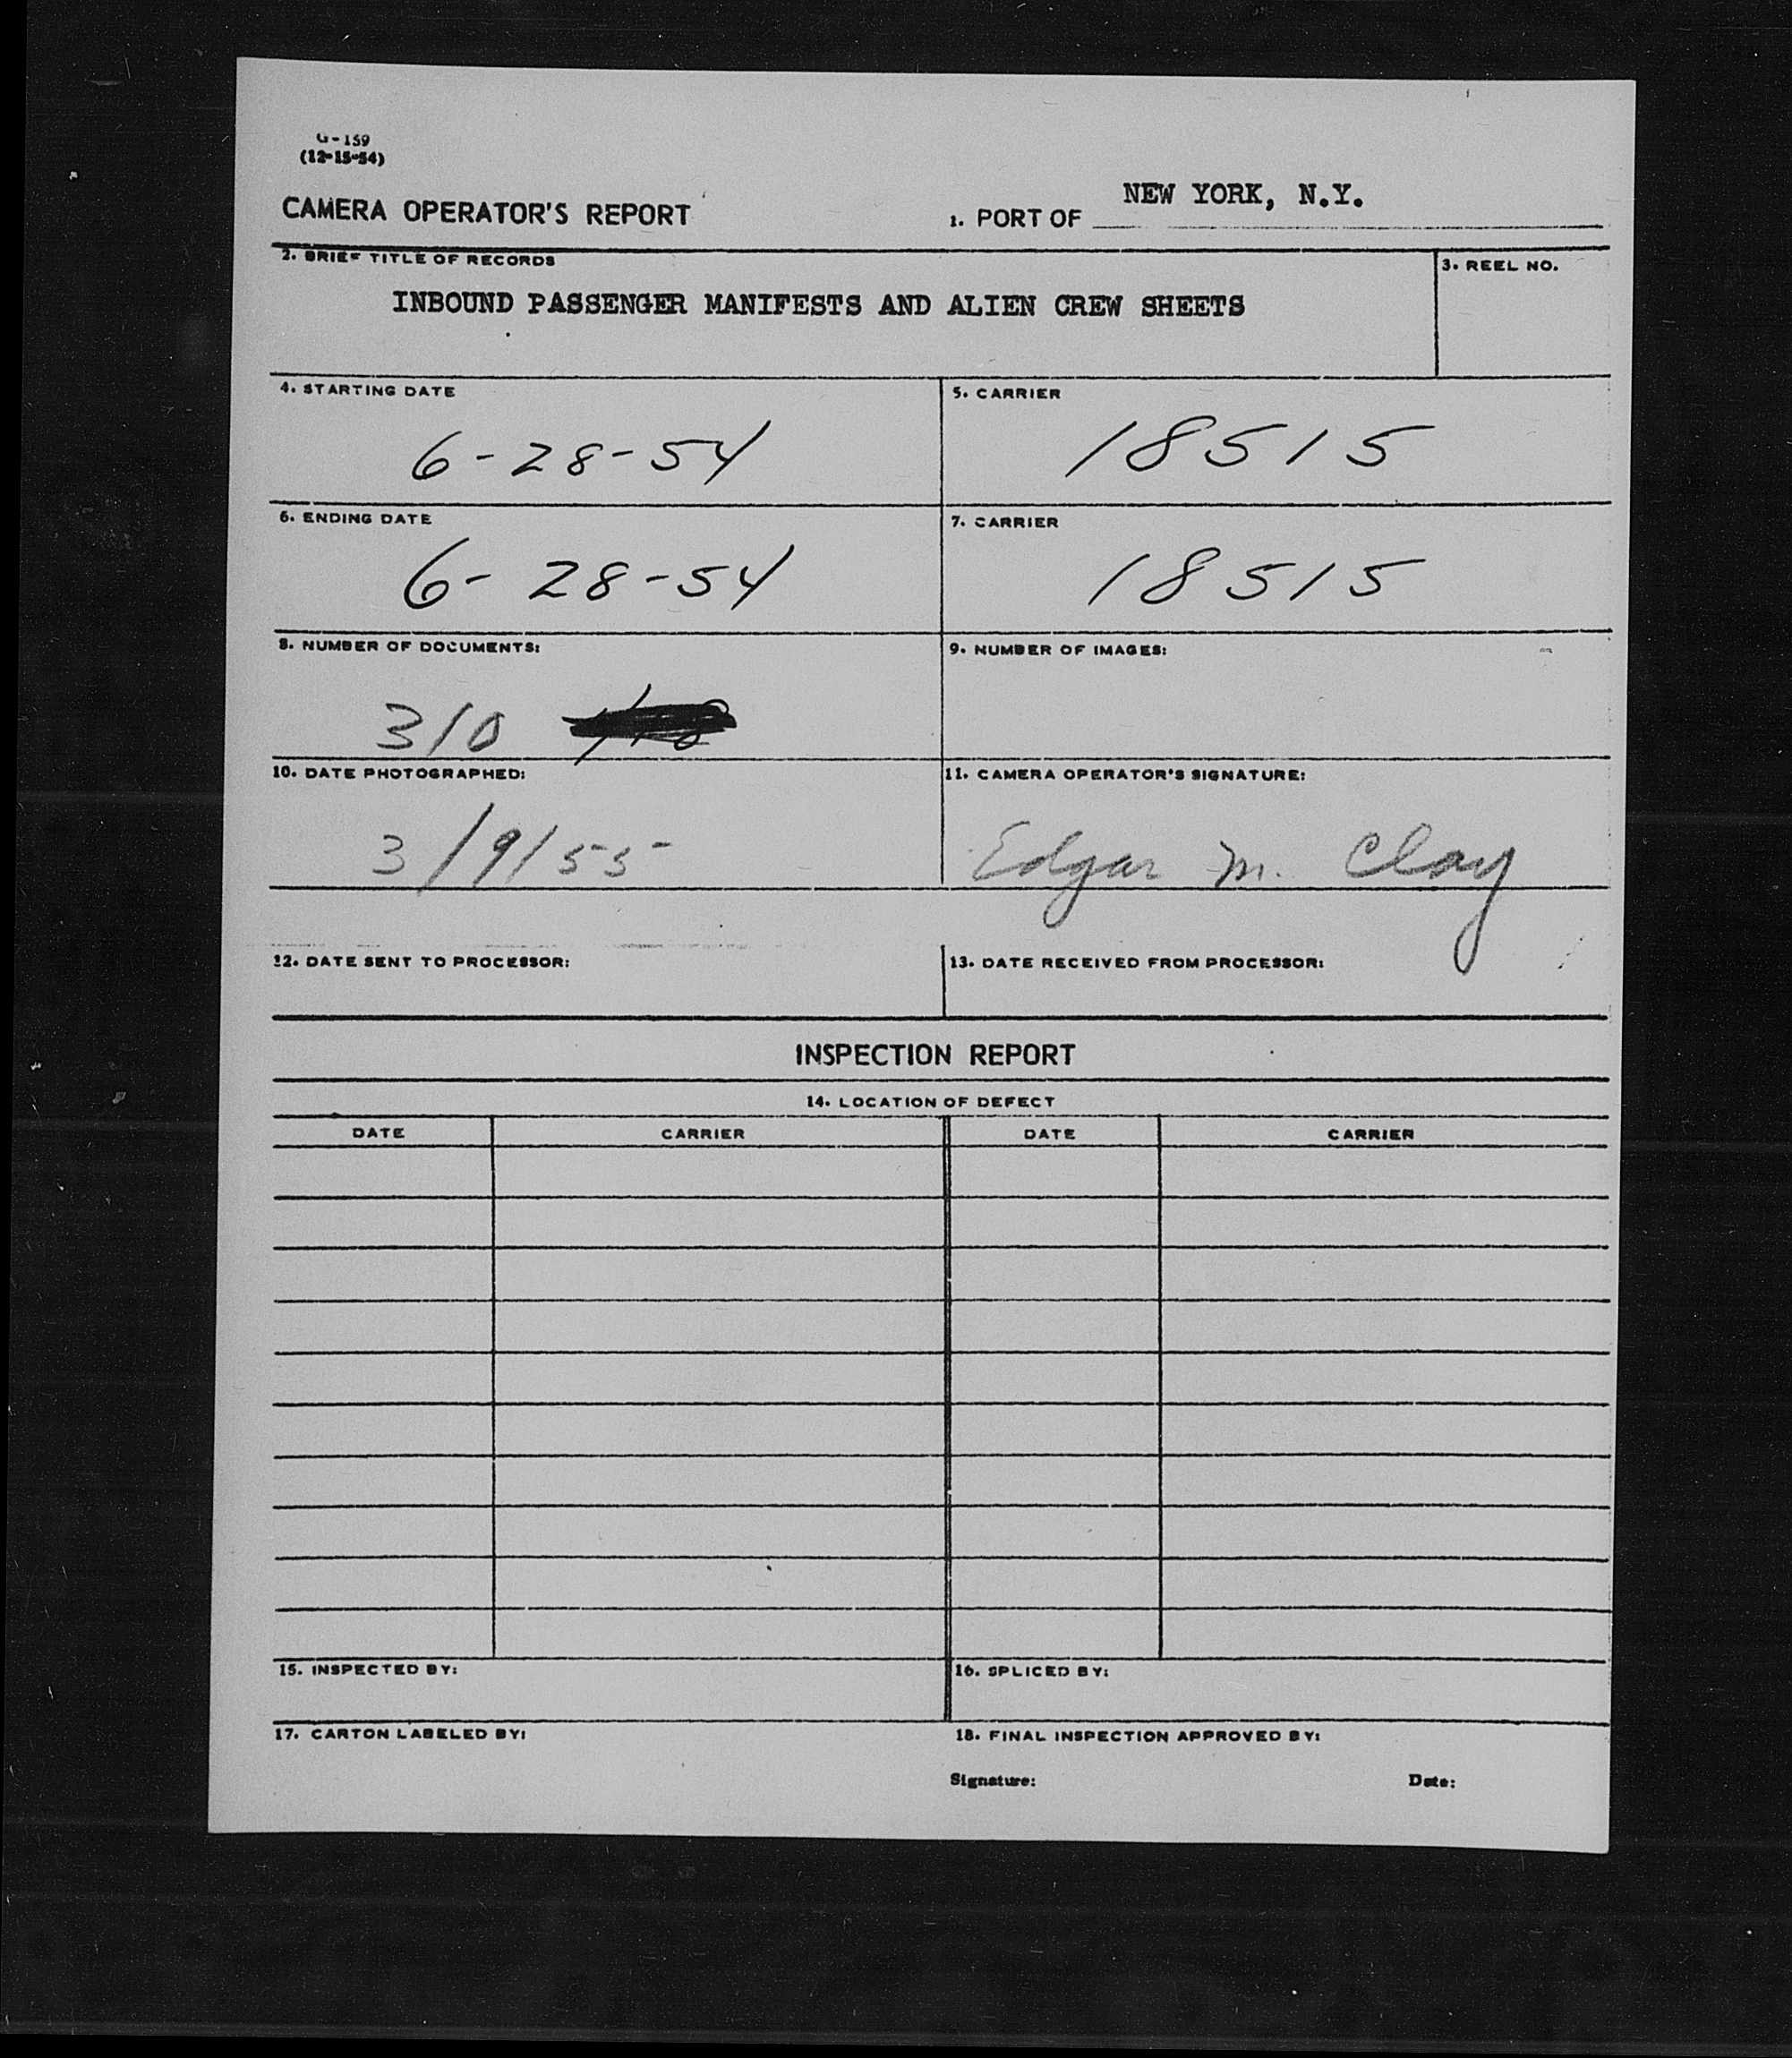 G-159
(12-15-54)
CAMERA OPERATOR'S REPORT
1. PORT OF NEW YORK, N.Y.
2. BRIEF TITLE OF RECORDS
3. REEL NO.
INBOUND PASSENGER MANIFESTS AND ALIEN CREW SHEETS
4. STARTING DATE
5. CARRIER
6-28-54
18515
6. ENDING DATE
7. CARRIER
6-28-54
18515
8. NUMBER OF DOCUMENTS:
9. NUMBER OF IMAGES:
310
10. DATE PHOTOGRAPHED:
11. CAMERA OPERATOR'S SIGNATURE:
3/9/55
Edgar M. Clay
12. DATE SENT TO PROCESSOR:
13. DATE RECEIVED FROM PROCESSOR:
INSPECTION REPORT
14. LOCATION OF DEFECT
DATE CARRIER DATE CARRIER
15. INSPECTED BY:
16. SPLICED BY:
17. CARTON LABELED BY:
18. FINAL INSPECTION APPROVED BY:
Signature: Date: